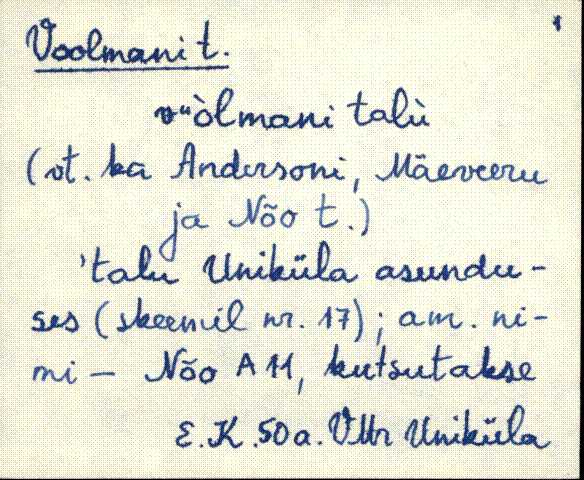 Voolmani t.
vuòlmani talù
(vt. ka Andersoni, Mäeveeru
ja Nõo t.)
'talu Uniküla asundu-
ses (skeemil nr. 17); am. ni-
mi — Nõo A 11, kutsutakse
E.K. 50a. VMr Uniküla